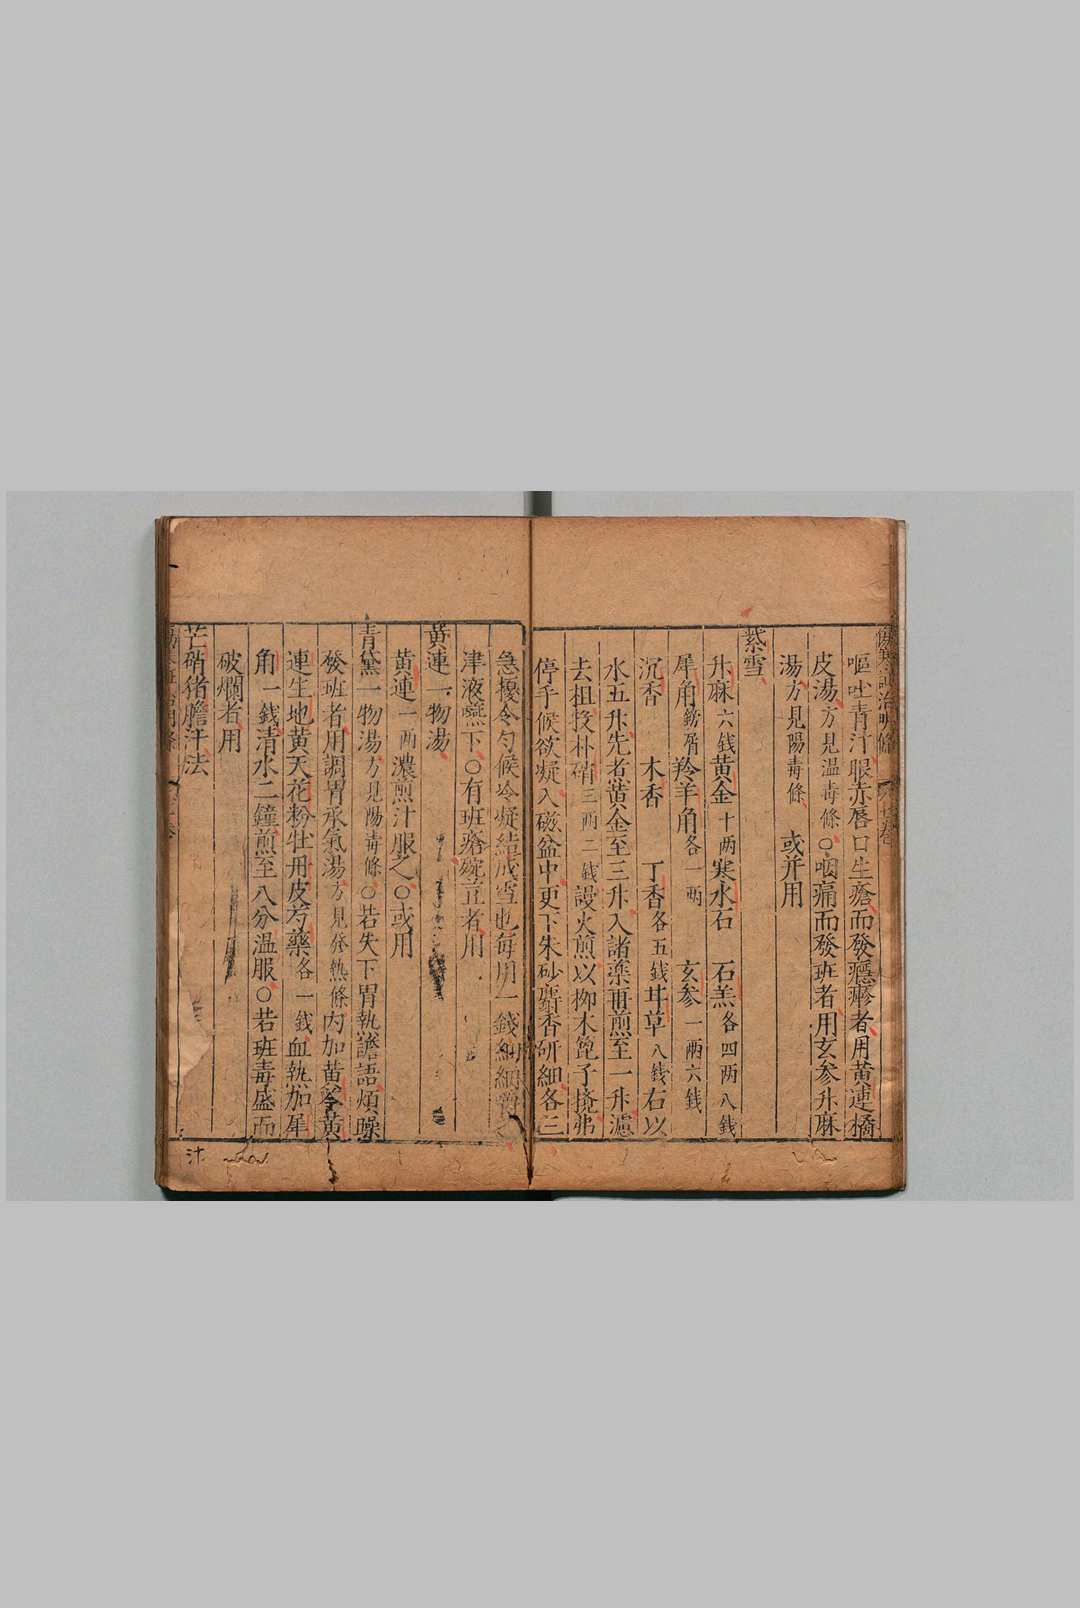 嘔吐青汁眼赤唇口生瘡而發癮疹者用黃連橘
皮湯方見温毒條○咽痛而發班者用玄參升麻
湯方見陽毒條 或并用
紫雪
升麻六錢黃金十兩寒水石 石羔各四两八錢
犀角鎊屑羚羊角各一兩 玄參一兩六錢
沉香 木香 丁香各五錢甘草八錢右以
水五升先煮黃金至三升入諸藥再煎至一升濾
去柤投朴硝三两二錢謾火煎以栁木篦子攪弗
停手候欲凝入磁盆中更下朱砂麝香研細各三
急擾令勻候冷凝結成雪也每用一錢細細嚥之
津液嚥下○有班瘡碗豆者用
黃連一物湯
黃連一两濃煎汁服之○或用
青黛一物湯方見陽毒條○若失下胃熱譫語煩躁
發班者用調胃承氣湯方見發熱條內加黃芩黃
連生地黃天花粉牡丹皮芍藥各一錢血熱加犀
角一錢清水二鐘煎至八分温服○若班毒盛而
破爛者用
芒硝猪膽汁法